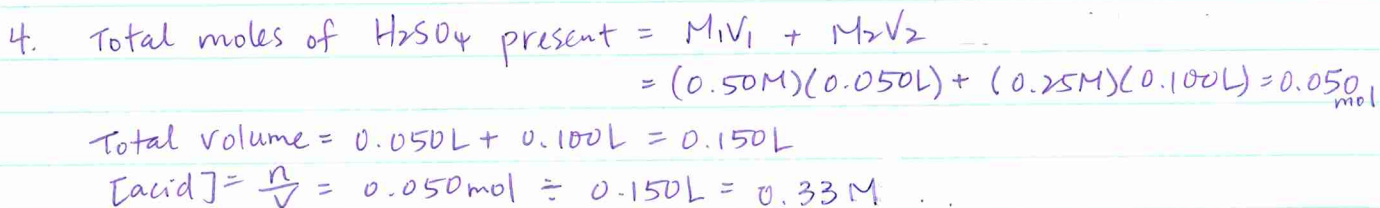 4. Total moles of H₂SO₄ present = M₁V₁ + M₂V₂
= (0.50M)(0.050L) + (0.25M)(0.100L) = 0.050 mol
Total volume = 0.050L + 0.100L = 0.150L
[acid] = n/V = 0.050mol ÷ 0.150L = 0.33 M